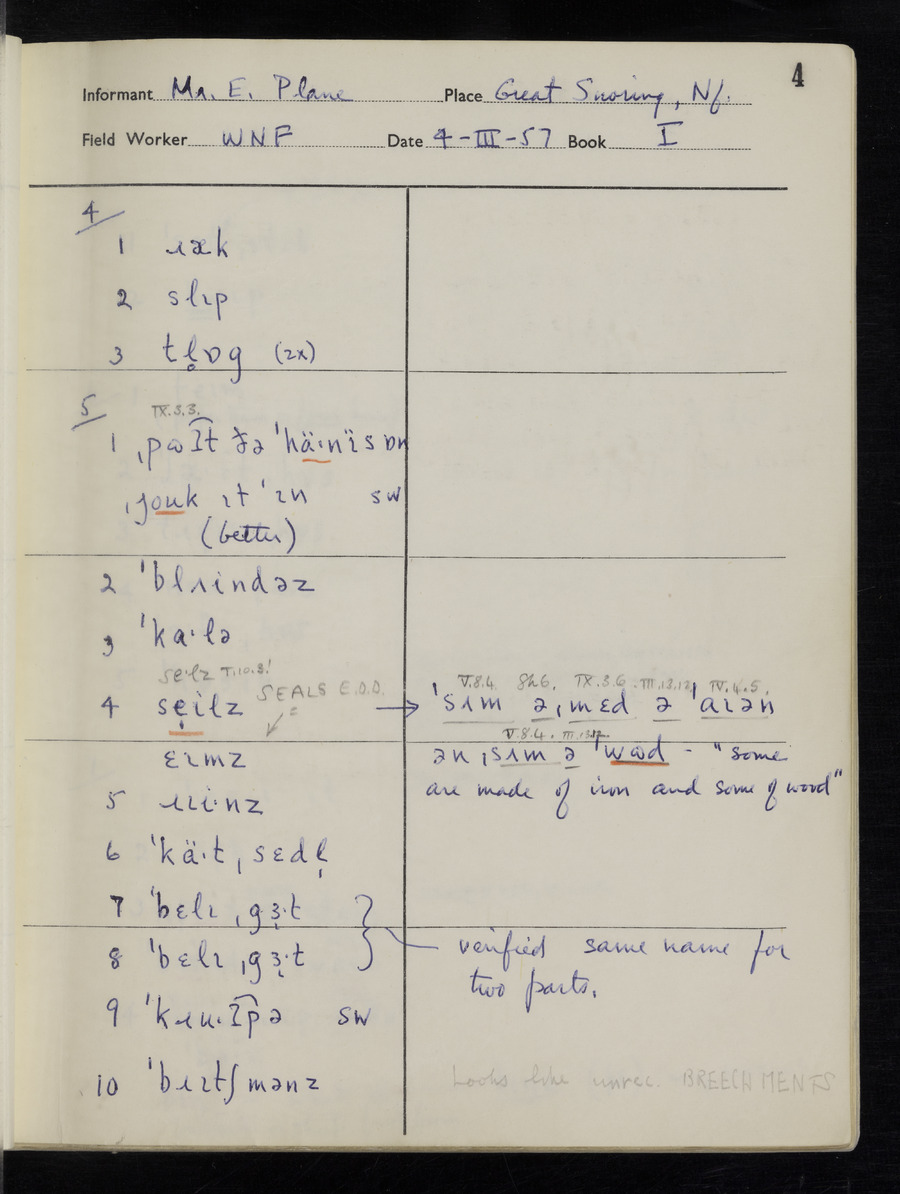 4
Informant Mr. E. Plane Place Great Snoring, Nf.
Field Worker WNF Date 4-III-57 Book I
4
1 ɹæk
2 slɪp
3 tl̥ɒg (2x)
5
IX.3.3.
1 ˌpɷʔt ðə ˈhä·nïs ɒn
ˌjouk ɪt ˈɪn sw
(better)
2 ˈblʌindəz
3 ˈka·lə
seˑlz V.10.3!
SEALS E.D.D.
4 sẹilz →
V.8.4. 8h6. IX.3.6. III.13.12, IV.4.5.
ˈsʌm əˌmɛd ə ˈaɪən
ɛɪmz
V.8.4. III.13.12.
ən ˌsʌm ə ˈwɷd - "some
are made of iron and some of wood"
5 ɹɪi·nz
6 ˈkä·t ˌsɛdl̩
7 ˈbɛlɪ ˌgɜ·t
8 ˈbɛlɪ ˌgɜ·t
verified same name for
two parts.
9 ˈkɹu·ʔpə sw
10 ˈbɹɪtʃmənz
Looks like unrec. BREECHMENTS